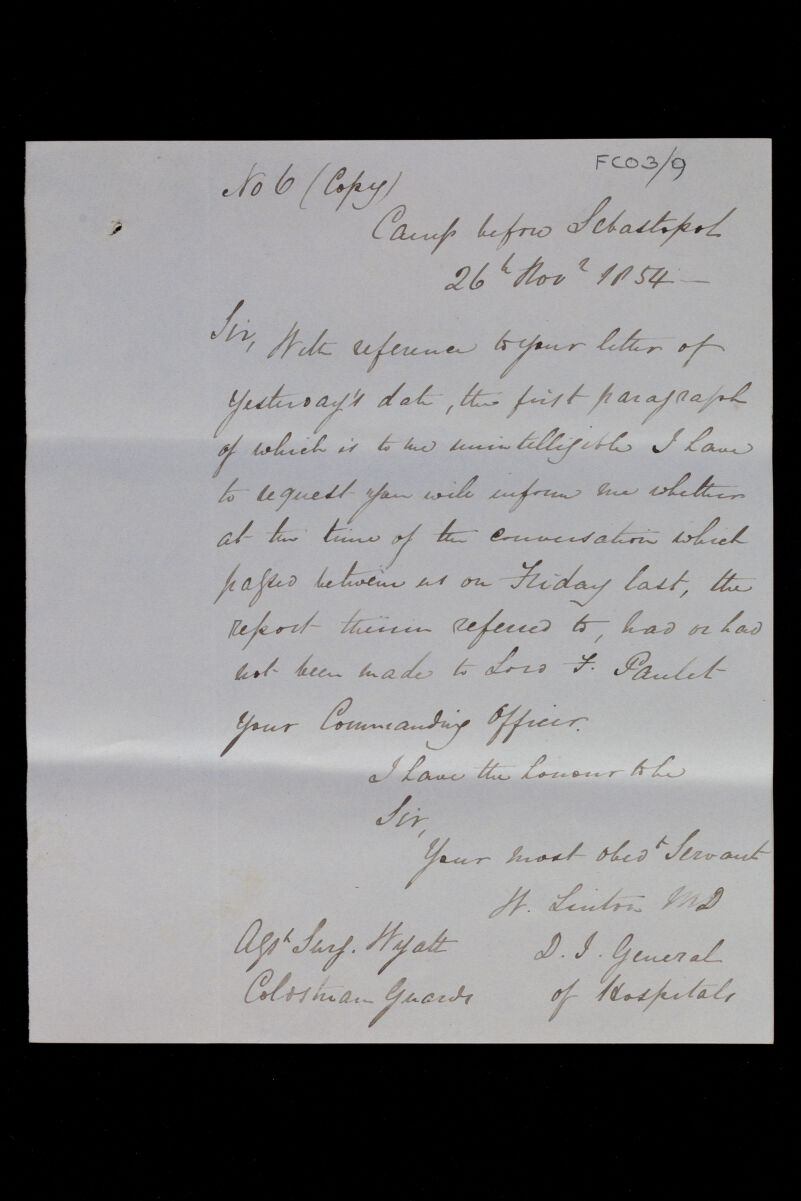 FCO3/9
No 6 (Copy)
Camp before Sebastopol
26th Novr 1854 —
Sir, With reference to your letter of
yesterday's date, the first paragraph
of which is to me unintelligible I have
to request you will inform me whether
at the time of the conversation which
passed between us on Friday last, the
report therein referred to, had or had
not been made to Lord F. Paulet
your Commanding Officer.
I have the honour to be
Sir,
Your most obedt Servant
W. Linton MD
Asst Surg. Wyatt
D. I. General
Coldstream Guards
of Hospitals